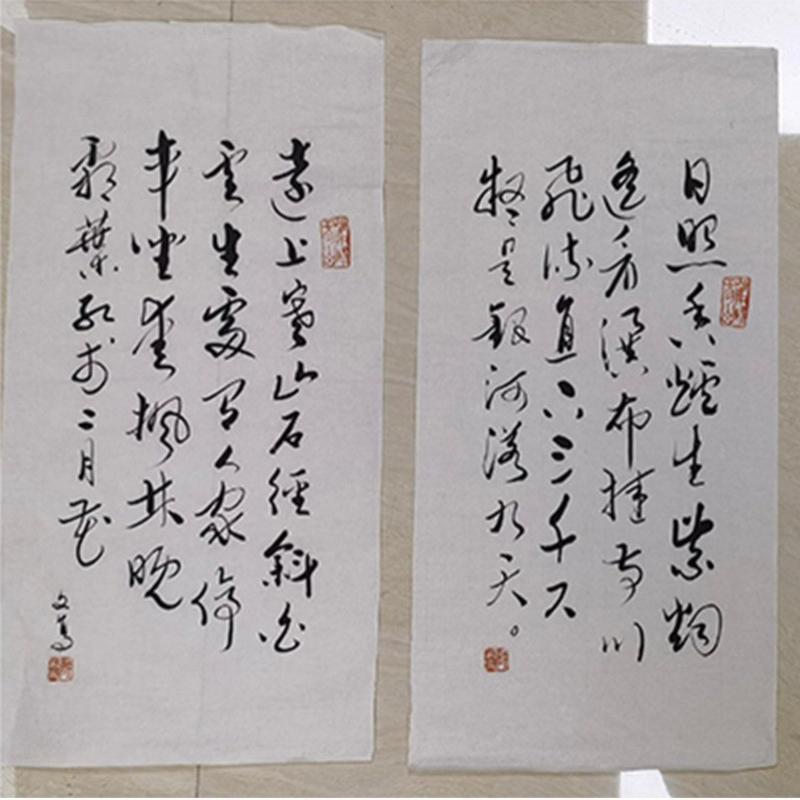 日照香爐生紫烟
遙看瀑布掛前川
飛流直下三千尺
疑是銀河落九天。
遠上寒山石徑斜白
雲生處有人家停
車坐愛楓林晚
霜葉紅於二月花
文